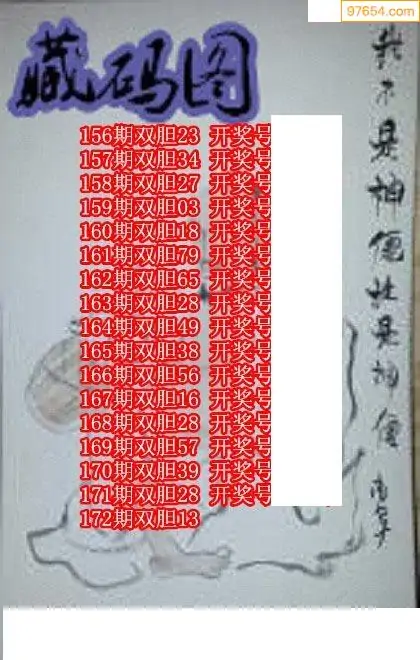 97654.com
藏码图
156期双胆23 开奖号
157期双胆34 开奖号
158期双胆27 开奖号
159期双胆03 开奖号
160期双胆18 开奖号
161期双胆79 开奖号
162期双胆65 开奖号
163期双胆28 开奖号
164期双胆49 开奖号
165期双胆38 开奖号
166期双胆56 开奖号
167期双胆16 开奖号
168期双胆28 开奖号
169期双胆57 开奖号
170期双胆39 开奖号
171期双胆28 开奖号
172期双胆13
不是神便
是神